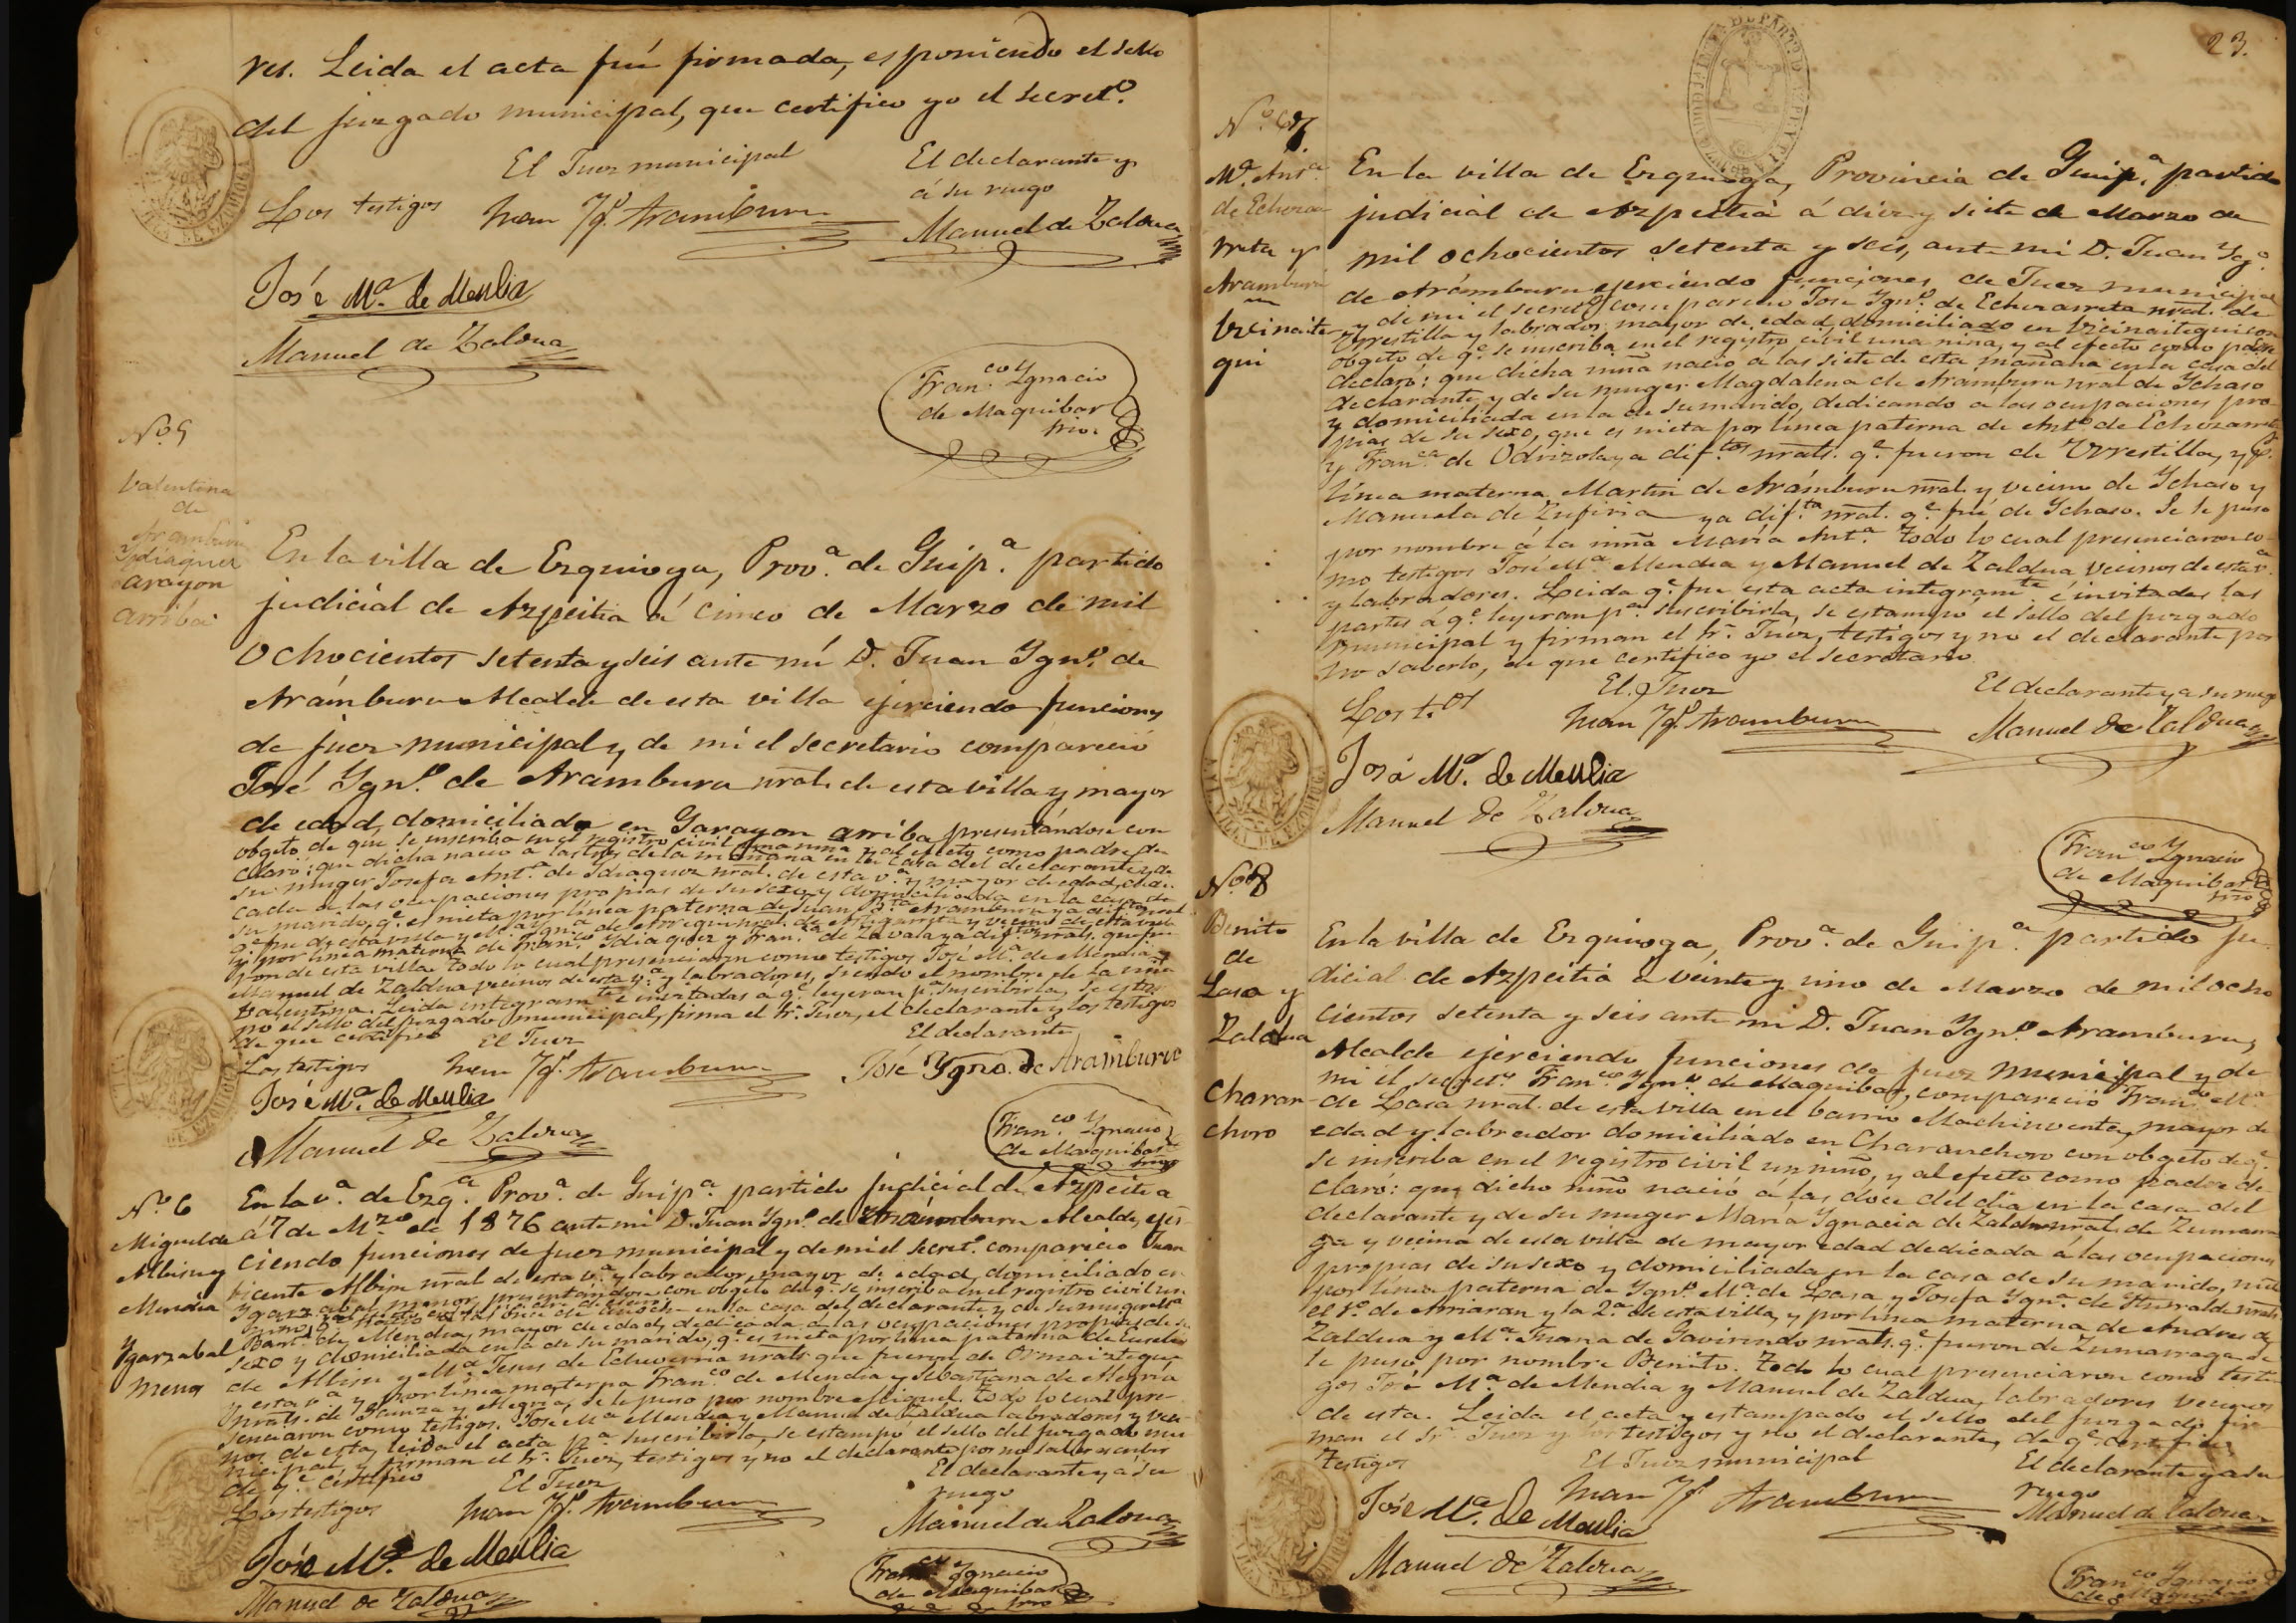 res. Leida el acta fué firmada, esponiendo el sello
del juzgado municipal, que certifico yo el secret.º
El Juez municipal
El declarante y
á su ruego
Los testigos
Juan Yg.º Aramburu
Manuel de Zaldua
José M.ª de Mendia
Manuel de Zaldua
Fran.co Ygnacio
de Maquibar
srio.
Nº 5
Valentina
de
Aramburu
Ydiaquez
arayon
arriba
En la villa de Ezquioga, Prov.ª de Guip.ª partido
judicial de Azpeitia á cinco de Marzo de mil
ochocientos setenta y seis ante mí D. Juan Ygn.º de
Arámburu Alcalde de esta villa ejerciendo funciones
de juez municipal y de mí el secretario compareció
José Ygn.º de Arámburu nral. de esta villa y mayor
de edad, domiciliado en Garayon arriba presentándose con
obgeto de que se inscriba en el registro civil una niña y al efecto como padre de-
claró: que dicha nació a las tres de la mañana en la casa del declarante y de
su muger Josefa Ant.ª de Ydiaquez nral. de esta v.ª y mayor de edad, dedi-
cada a las ocupaciones propias de su sexo y domiciliada en la casa de
su marido, q.e es nieta por línea paterna de Juan B.ta Aramburu ya dif.to nral.
q.e fue de esta villa y de
y por línea materna de Fran.co Ydiaquez y Fran.ca de Zavala ya dif.tos nrals. que fue-
ron de esta villa todo lo cual presenciaron como testigos José M.ª de Mendia y
Manuel de Zaldua vecinos de esta v.ª y labradores, siendo el nombre de la niña
Valentina. Leida integram.te é invitadas a q.e leyeran p.ª suscribirla, se estam-
pó el sello del juzgado municipal, firma el Sr. Juez, el declarante y los testigos
de que certifico
El Juez
El declarante
Los testigos
Juan Yg.º Aramburu
José Ygno. de Aramburu
José M.ª de Mendia
Manuel de Zaldua
Fran.co Ygnacio
de Maquibar
srio
Nº 6
Miguel de
Albisu y
Mendia
Ygarzabal
menor
En la v.ª de Ezq.ª Prov.ª de Guip.ª partido judicial de Azpeitia
á 7 de M.zo de 1876 ante mi D. Juan Ygn.º de Arámburu Alcalde, ejer-
ciendo funciones de juez municipal y de mi el secret.º compareció Juan
Vicente Albisu nral. de esta v.ª y labrador, mayor de edad, domiciliado en
Ygarzabal menor, presentándose con obgeto de q.e se inscriba en el registro civil un
niño,
de Mendia, mayor de edad, dedicada a las ocupaciones propias de su
sexo y domiciliada en la de su marido, q.e es nieta por línea paterna de Eusebio
de Albisu y M.ª Jesus de Echeverria nrals. que fueron de Ormaiztegui
y esta v.ª y por línea materna Fran.co de Mendia y Sebastiana de Alegria
nrals. de Gainza y Alegria, se le puso por nombre Miguel. Todo lo cual pre-
senciaron como testigos José M.ª Mendia y Manuel de Zaldua labradores y veci-
nos de esta, leida el acta p.ª suscribirla, se estampó el sello del juzgado mu-
nicipal, y firman el Sr. Juez, testigos y no el declarante por no saber escribir
de q.e certifico
El Juez
El declarante y a su
ruego
Los testigos
Juan Yg.º Aramburu
Manuel de Zaldua
José M.ª de Mendia
Manuel de Zaldua
Fran.co Ygnacio
de Maquibar
srio
23.
Nº 7
M.ª Ant.ª
de Echeza
rreta y
Aramburu
Vicinaite
gui
En la villa de Ezquioga, Provincia de Guip.ª partido
judicial de Azpeitia á diez y siete de Marzo de
mil ochocientos setenta y seis, ante mi D. Juan Yg.º
de Arámburu ejerciendo funciones de Juez municipal
y de mi el secret.º compareció José Ygn.º de Echezarreta nral. de
Urrestilla y labrador mayor de edad, domiciliado en Vicinaitegui con
obgeto de q.e se inscriba en el registro civil una niña, y al efecto como padre
declaró: que dicha niña nació a las siete de esta mañana en la casa del
declarante, y de su muger Magdalena de Arámburu nral. de Ychaso
y domiciliada en la de su marido, dedicando a las ocupaciones pro-
pias de su sexo, que es nieta por línea paterna de Ant.º de Echezarreta
y Fran.ca de Odriozola ya dif.tos nrals. q.e fueron de Urrestilla, y p.r
línea materna Martin de Arámburu nral. y vecino de Ychaso y
Manuela de Zufiria ya dif.ta nral. q.e fué de Ychaso. Se le puso
por nombre á la niña María Ant.ª Todo lo cual presenciaron co-
mo testigos José M.ª Mendia y Manuel de Zaldua vecinos de esta v.ª
y labradores. Leida q.e fue esta acta integram.te é invitadas las
partes á q.e leyeran p.ª suscribirla, se estampó el sello del juzgado
municipal y firman el Sr. Juez, testigos y no el declarante por
no saberlo, de que certifico yo el secretario
El Juez
El declarante y a su ruego
Los t.os
Juan Yg.º Aramburu
Manuel de Zaldua
José M.ª de Mendia
Manuel de Zaldua
Fran.co Ygnacio
de Maquibar
srio
Nº 8
Benito
de
Lasa y
Zaldua
Charan-
choro
En la villa de Ezquioga, Prov.ª de Guip.ª partido ju-
dicial de Azpeitia á veinte y uno de Marzo de mil ocho
cientos setenta y seis ante mi D. Juan Ygn.º Aramburu,
Alcalde ejerciendo funciones de juez municipal y de
mi el secret.º Fran.co Ygn.º de Maquibar, compareció Fran.co M.ª
de Lasa nral. de esta villa en el barrio Machinventa, mayor de
edad y labrador domiciliado en Charanchoro con obgeto de q.e
se inscriba en el registro civil un niño, y al efecto como padre de-
claró: que dicho niño nació á las doce del dia en la casa del
declarante y de su muger María Ygnacia de Zaldua nral. de Zumarra
ga y vecina de esta villa de mayor edad dedicada á las ocupaciones
propias de su sexo y domiciliada en la casa de su marido, nieto
por línea paterna de Ygn.º M.ª de Lasa y Josefa Ygn.ª de Iturralde nrals.
el 1.º de Amaran y la 2.ª de esta villa, y por línea materna de Andres de
Zaldua y M.ª Juana de Gavirondo nrals. q.e fueron de Zumarraga. Se
le puso por nombre Benito. Todo lo cual presenciaron como testi-
gos José M.ª de Mendia y Manuel de Zaldua, labradores vecinos
de esta. Leida el acta y estampado el sello del juzgado fir-
man el Sr. Juez y los testigos y no el declarante, de q.e certifico
Testigos
El Juez municipal
El declarante y a su
ruego
José M.ª de Mendia
Juan Yg.º Aramburu
Manuel de Zaldua
Manuel de Zaldua
Fran.co Ygnacio
de Maquibar